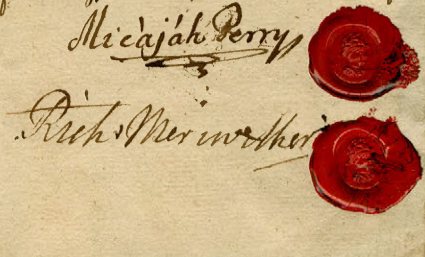 Micajah Perry
Rich: Meriwether